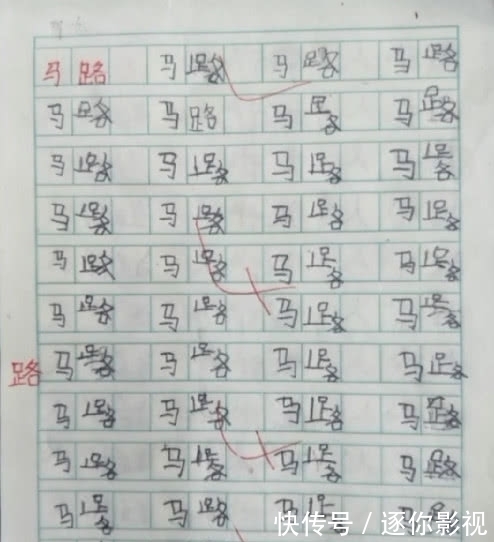 马 路 马 路 马 路 马 路
马 路 马 路 马 路 马 路
马 路 马 路 马 路 马 路
马 路 马 路 马 路 马 路
马 路 马 路 马 路 马 路
马 路 马 路 马 路 马 路
路 马 路 马 路 马 路 马 路
马 路 马 路 马 路 马 路
马 路 马 路 马 路 马 路
马 路 马 路 马 路 马 路
快传号 / 逐你影视